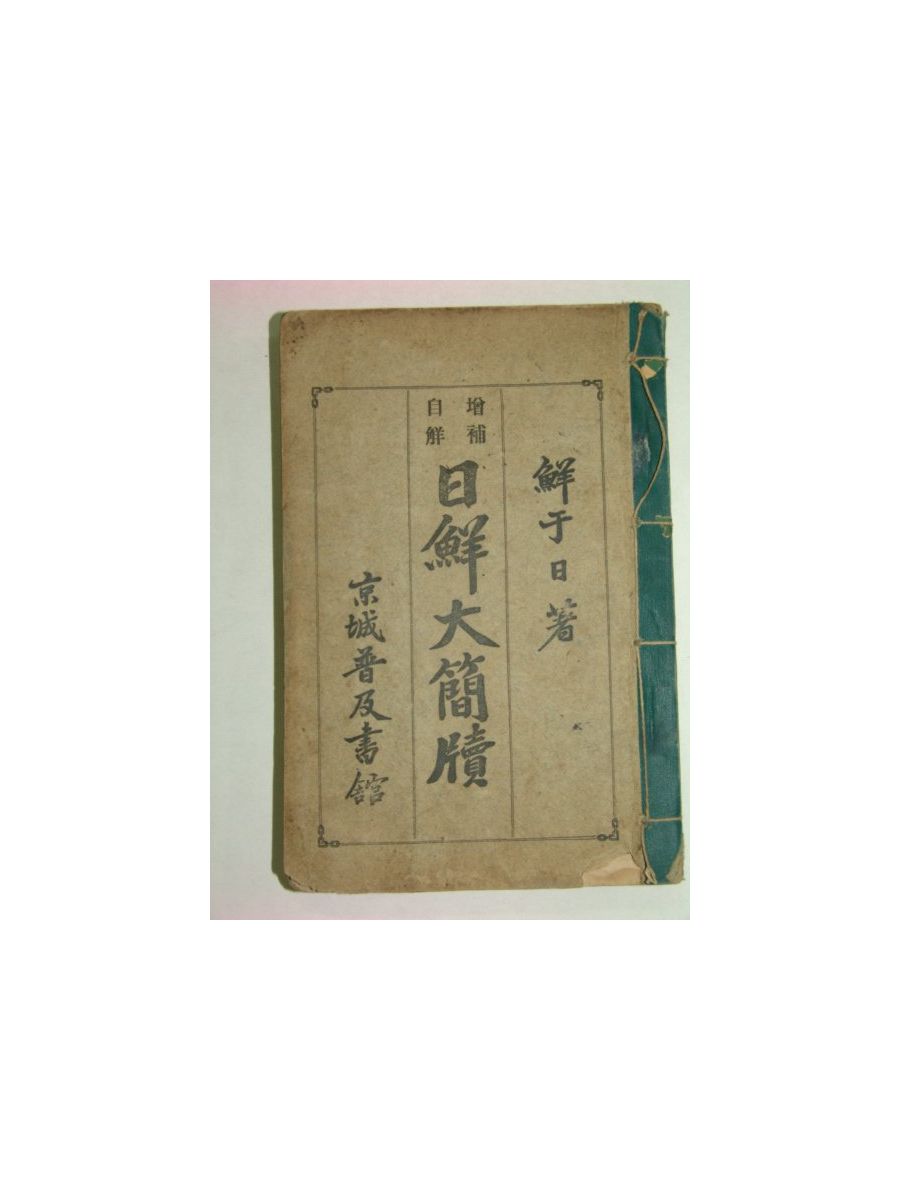 鮮于日著
增補
自鮮
日鮮大簡牘
京城普及書舘